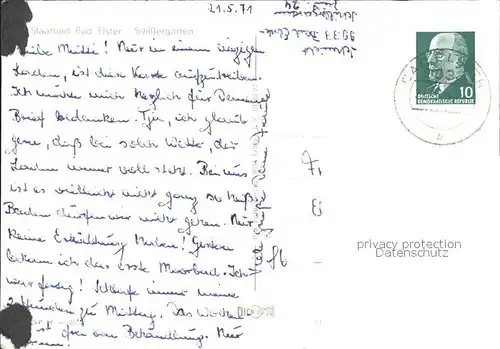 21.5.71
Staatbad Bad Elster Schillergarten
Liebe Mutti! Nur in einem einzigen
Laden, ist diese Karte aufzutreiben.
Ich möchte mich herzlich für Deinen
Brief bedanken. Tja, ich glaub
gern, daß bei solch Wetter, der
Laden immer voll steht. Bei uns
ist es vielleicht nicht ganz so heiß.
Baden dürfen wir nicht gehen. Nur
keine Erkältung haben! Gestern
bekam ich das erste Moorbad. Ich
war fertig! Schlafe immer meine
2 Stunden zu Mittag. Das Wochen
ist frei von Behandlung. Nur
Viele Grüße Deine
9933 Bad Elster
10
DEUTSCHE
DEMOKRATISCHE REPUBLIK
privacy protection
Datenschutz